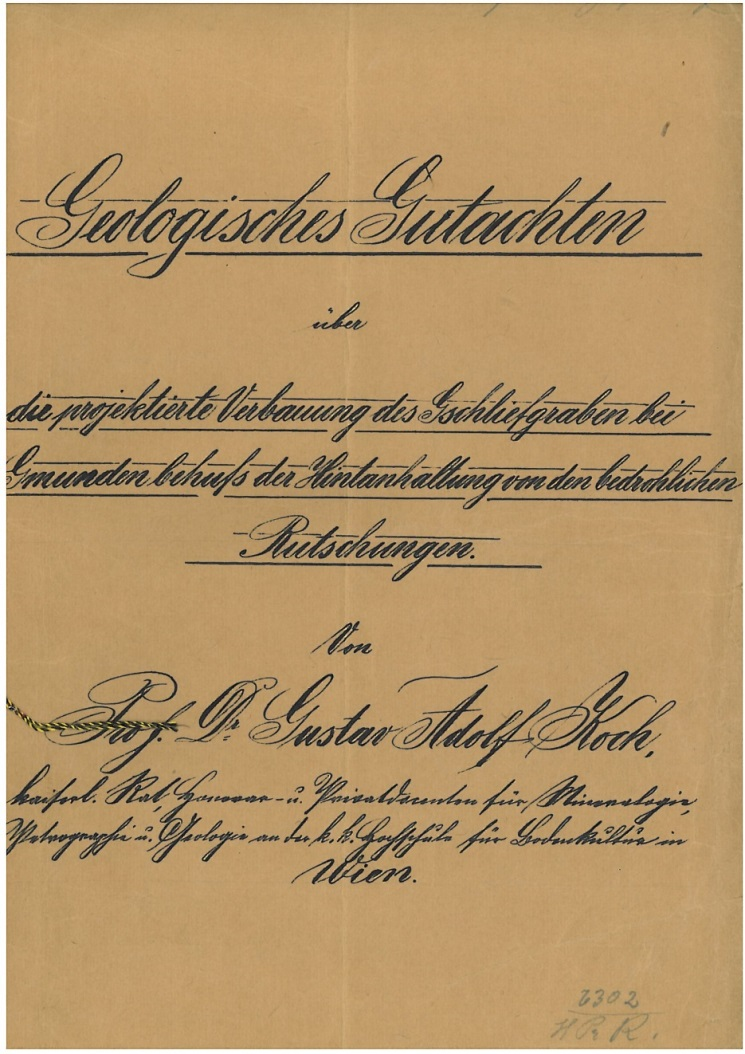 Geologisches Gutachten
über
die projektierte Verbauung des Gschliefgraben bei
Gmunden behufs der Hintanhaltung von den bedrohlichen
Rutschungen.
Von
Prof. Dr. Gustav Adolf Koch,
kaiserl. Rat, Honorar- u. Privatdocenten für Mineralogie,
Petrographie u. Geologie an der k. k. Hochschule für Bodenkultur in
Wien.
6302